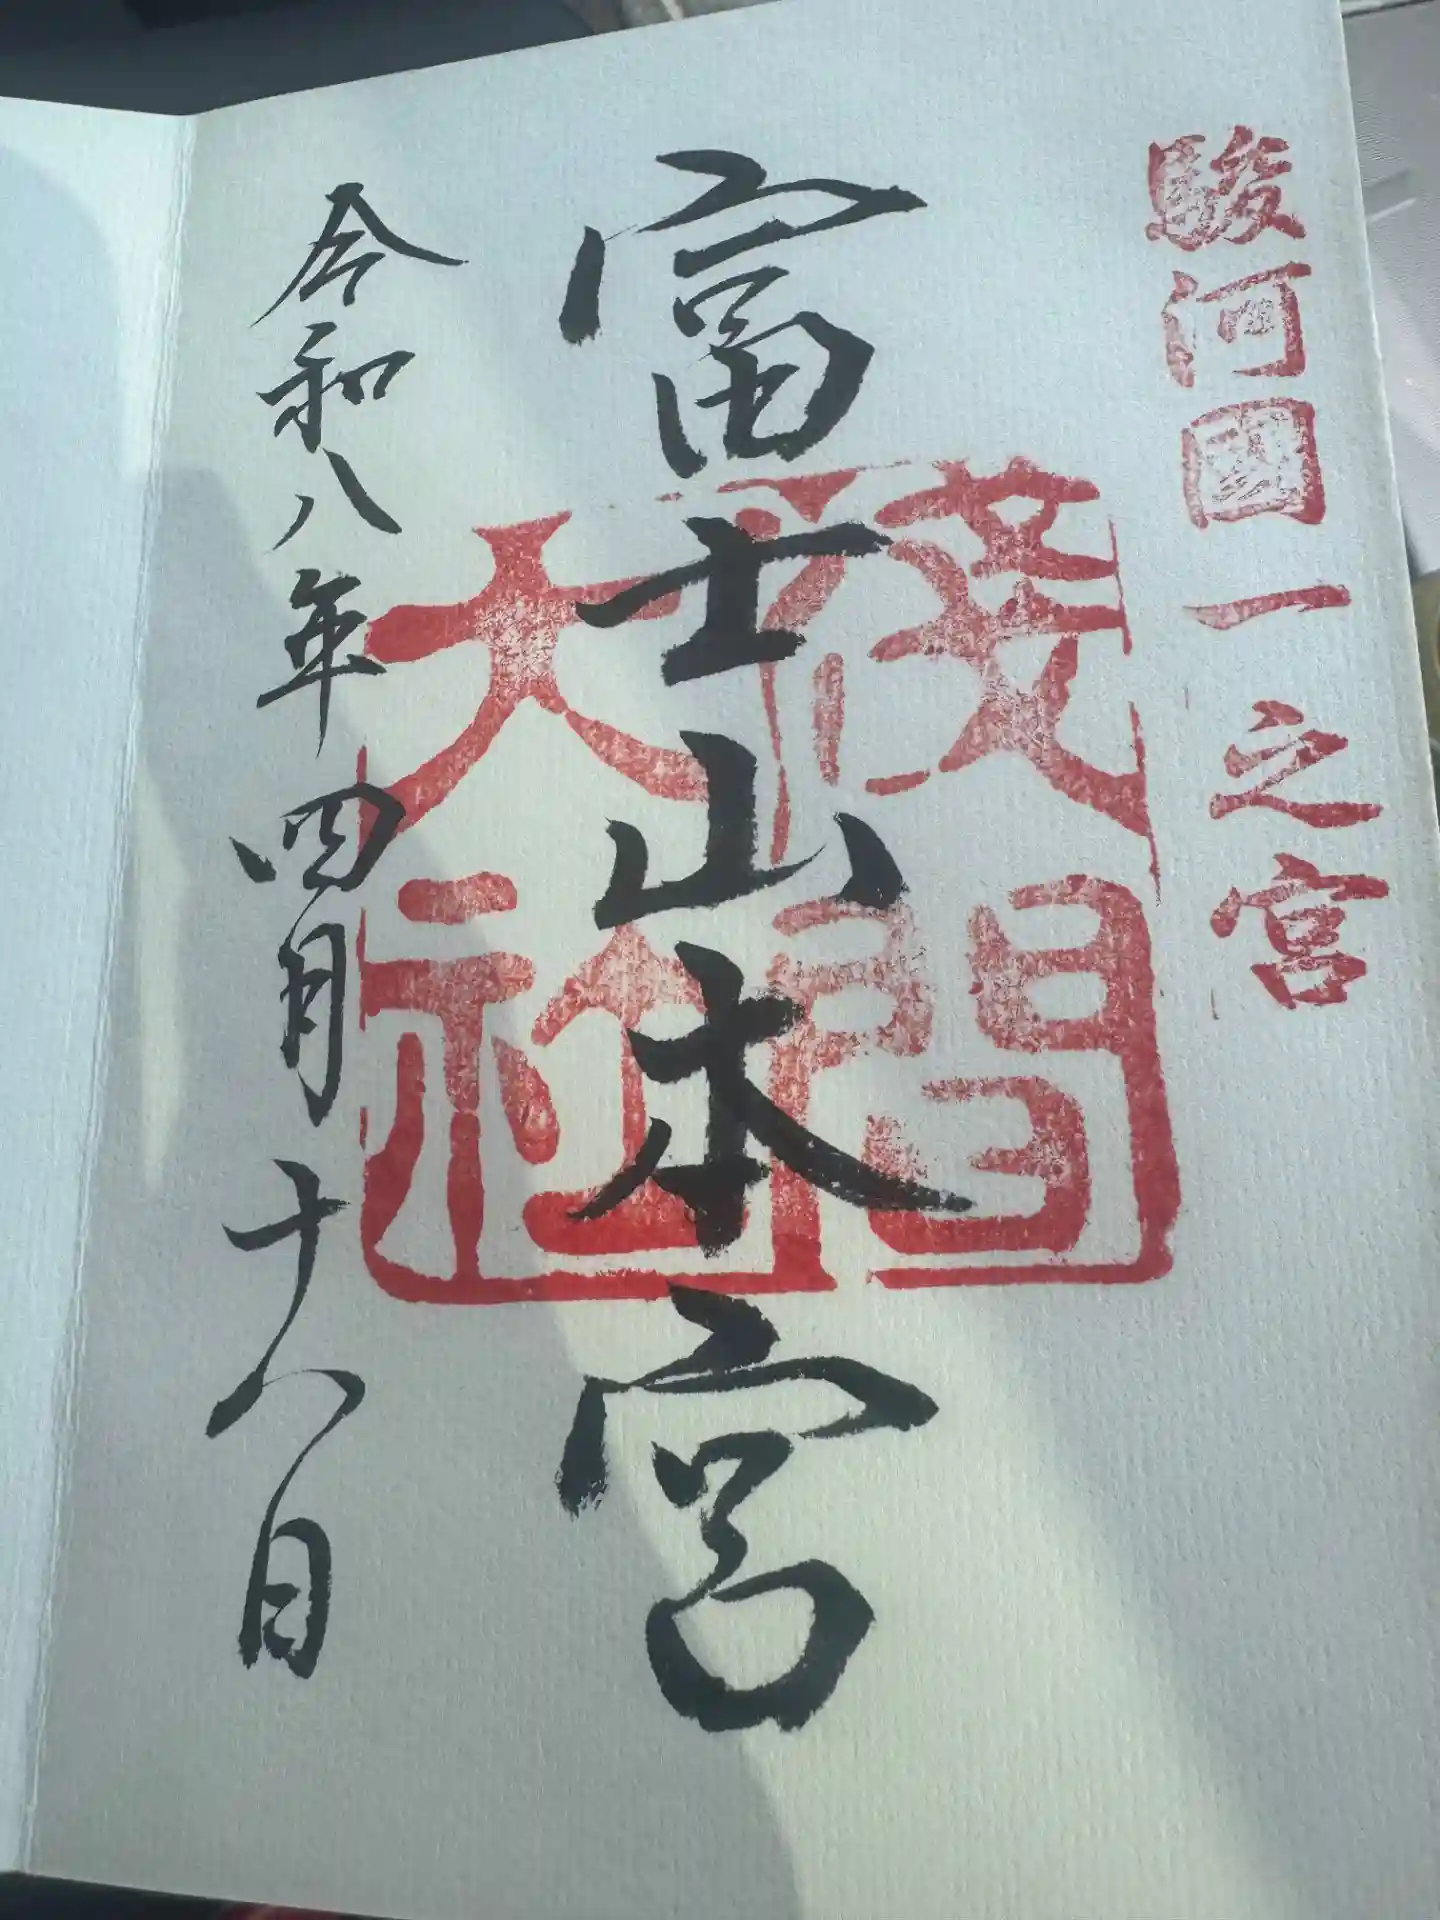 駿河國一之宮
富士山本宮
淺間大社
令和八年四月十八日